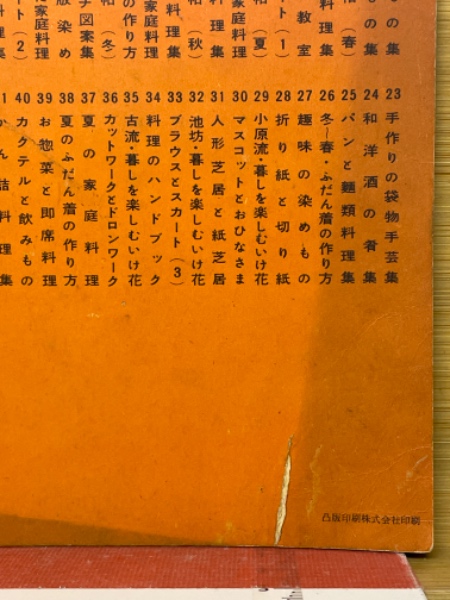 の集
の集
(春)
料理集
教室
ト(1)
(夏)
家庭料理
料理集
(秋)
理集
家庭料理
(冬)
の作り方
チ図案集
版染め
家庭料理
ト(2)
料理集
23 手作りの袋物手芸集
24 和洋酒の肴集
25 パンと麺類料理集
26 冬〜春・ふだん着の作り方
27 趣味の染めもの
28 折り紙と切り紙
29 小原流・暮しを楽しむいけ花
30 マスコットとおひなさま
31 人形芝居と紙芝居
32 池坊・暮しを楽しむいけ花
33 ブラウスとスカート(3)
34 料理のハンドブック
35 古流・暮しを楽しむいけ花
36 カットワークとドロンワーク
37 夏の家庭料理
38 夏のふだん着の作り方
39 お惣菜と即席料理
40 カクテルと飲みもの
1 かん詰料理集
凸版印刷株式会社印刷